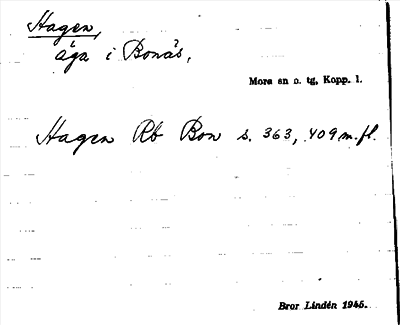 Hagen,
äga i Bonäs,
Mora sn o. tg, Kopp. l.
Hagen Rb Bon s. 363, 409 m.fl.
Bror Lindén 1945.